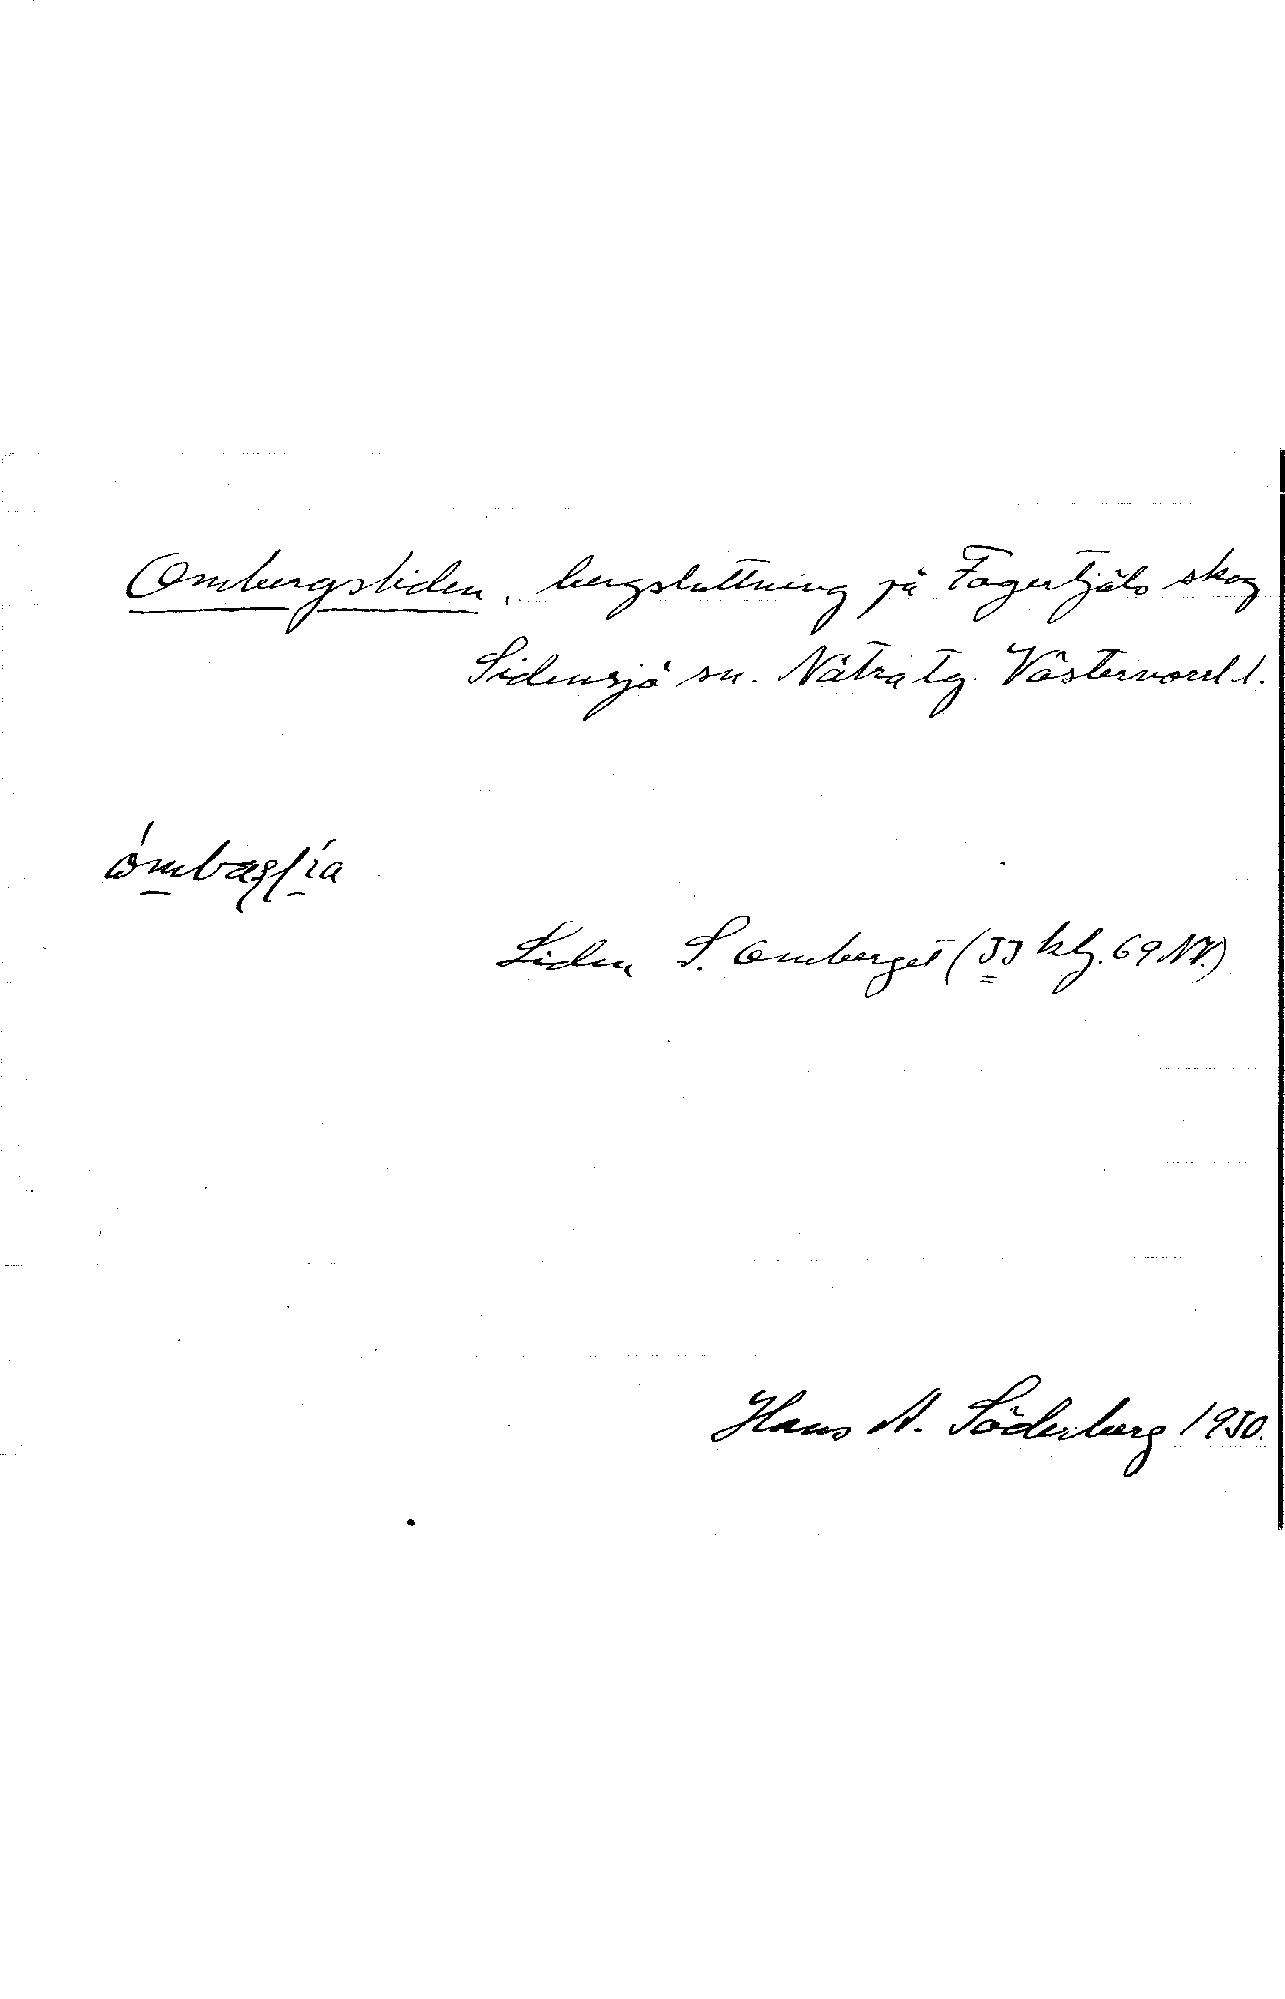 Ombergsliden, bergsluttning på Fagertjäls skog
Sidensjö sn. Nätra tg. Västernorrl. l.
Liden S. Omberget (JJ blg. 69 NV.)
Hans A. Söderberg 1950.